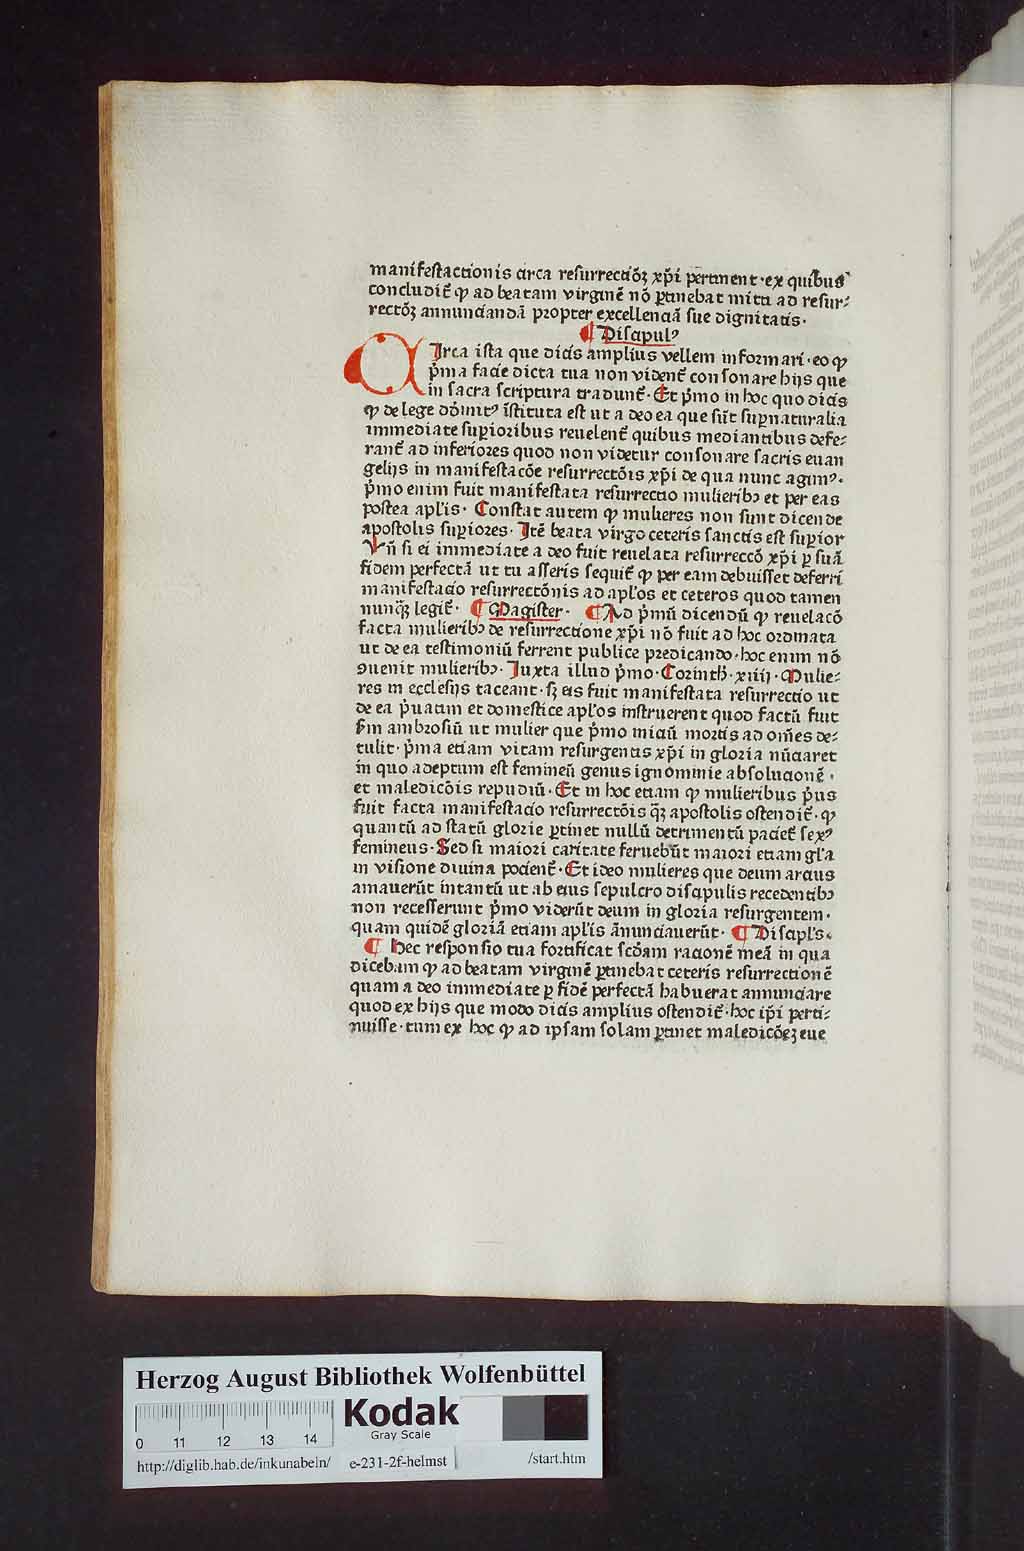 manifestactionis circa resurrectiōꝫ xp̄i pertinent·ex quibus
concludit᷑ ꝙ ad beatam virginē nō ꝑtinebat mitti ad resur⸗
rectōꝫ annunciandā propter excellenciā sue dignitatis·
¶ Discipulꝰ
CIrca ista que dicis amplius vellem informari·eo ꝙ
p̄ma facie dicta tua non vident᷑ consonare hijs que
in sacra scriptura tradunt᷑· Et p̄mo in hoc quo dicis
ꝙ de lege dōinitꝰ īstituta est ut a deo ea que sūt suꝑnaturalia
immediate suꝑioribus reuelent᷑ quibus mediantibus defe⸗
rant᷑ ad inferiores quod non videtur consonare sacris euan
gelijs in manifestacōe resurrectōis xp̄i de qua nunc agimꝰ·
p̄mo enim fuit manifestata resurrectio mulieribꝫ et per eas
postea apl̄is· Constat autem ꝙ mulieres non sunt dicende
apostolis suꝑiores· Itē beata virgo ceteris sanctis est suꝑior
Vn̄ si ei immediate a deo fuit reuelata resurreccō xp̄i ꝑ suā
fidem perfectā ut tu asseris sequit᷑ ꝙ per eam debuisset deferri
manifestacio resurrectōnis ad apl̄os et ceteros quod tamen
nunqꝫ legit᷑· ¶ Magister· ¶ Ad p̄mū dicendū ꝙ reuelacō
facta mulieribꝫ de resurrectione xp̄i nō fuit ad hoc ordinata
ut de ea testimoniū ferrent publice predicando·hoc enim nō
ꝯuenit mulieribꝫ· Iuxta illud p̄mo·Corinth·xiiij·Mulie⸗
res in ecclesijs taceant·sꝫ eis fuit manifestata resurrectio ut
de ea p̄uatim et domestice apl̄os instruerent quod factū fuit
s̄m ambrosiū ut mulier que p̄mo iniciū mortis ad om̄es de⸗
tulit·p̄ma etiam vitam resurgentis xp̄i in gloria nūciaret
in quo adeptum est femineū genus ignominie absolucionē·
et maledicōis repudiū· Et in hoc etiam ꝙ mulieribus p̄us
fuit facta manifestacio resurrectōis q̄ꝫ apostolis ostendit᷑·ꝙ
quantū ad statū glorie ꝑtinet nullū detrimentū paciet᷑ sexꝰ
femineus· Sed si maiori caritate feruebūt maiori etiam gl̄a
in visione diuina pocient᷑· Et ideo mulieres que deum arcius
amauerūt intantū ut ab eius sepulcro discipulis recedentibꝫ
non recesserunt p̄mo viderūt deum in gloria resurgentem·
quam quidē gloriā etiam apl̄is ānunciauerūt· ¶ Discipl̄s·
¶ Hec responsio tua fortificat scd̄am racionē meā in qua
dicebam ꝙ ad beatam virginē ꝑtinebat ceteris resurrectionē
quam a deo immediate ꝑ fidē perfectā habuerat annunciare
quod ex hijs que modo dicis amplius ostendit᷑·hoc ip̄i perti⸗
nuisse·tum ex hoc ꝙ ad ipsam solam ꝑtinet maledicōeꝫ eue
Herzog August Bibliothek Wolfenbüttel
Kodak
Gray Scale
0 11 12 13 14
http://diglib.hab.de/inkunabeln/ e-231-2f-helmst /start.htm